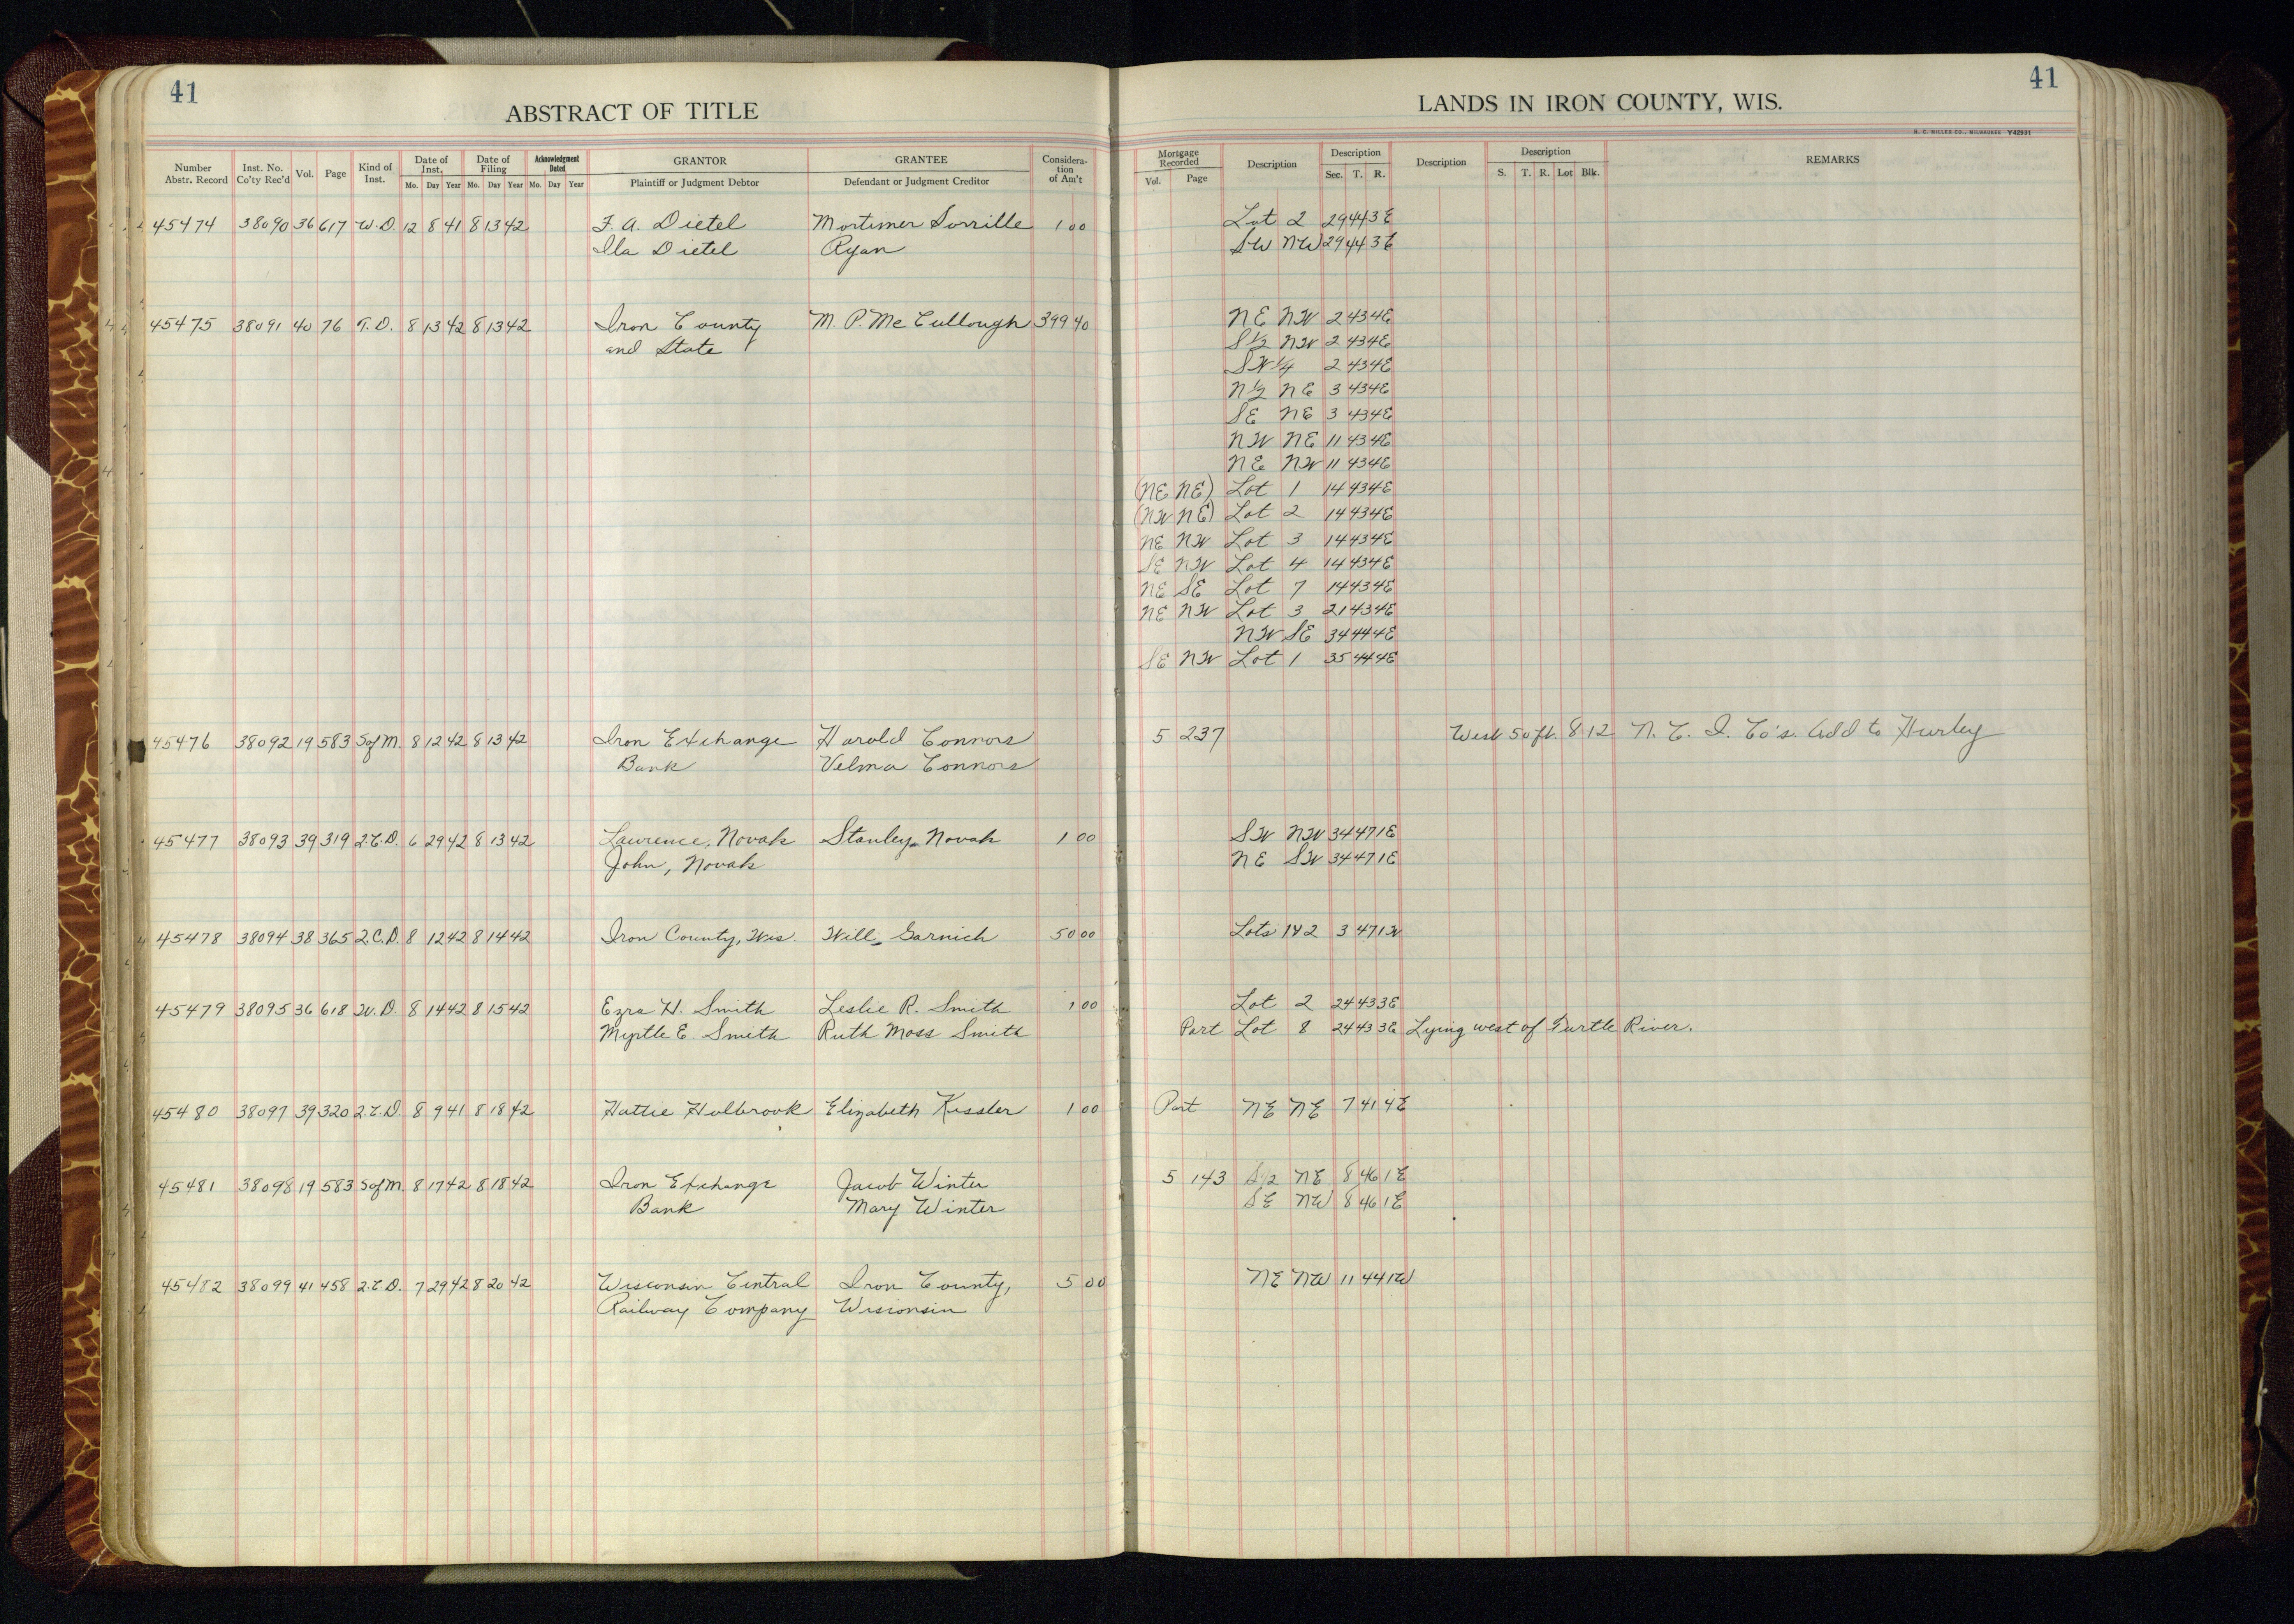 41
ABSTRACT OF TITLE
Number Abstr. Record
Inst. No. Co'ty Rec'd
Vol.
Page
Kind of Inst.
Date of Inst.
Mo. Day Year
Date of Filing
Mo. Day Year
Acknowledgment Dated
Mo. Day Year
GRANTOR
Plaintiff or Judgment Debtor
GRANTEE
Defendant or Judgment Creditor
Considera-
tion
of Am't
45474 38090 36 617 W.D. 12 8 41 8 13 42 F. A. Dietel Mortimer Sorrille 1 00
Ila Dietel Ryan
45475 38091 40 76 T.D. 8 13 42 8 13 42 Iron County M. P. McCullough 399 40
and State
45476 38092 19 583 S of M. 8 12 42 8 13 42 Iron Exchange Harold Connors
Bank Velma Connors
45477 38093 39 319 2.C.D. 6 29 42 8 13 42 Lawrence, Novak Stanley Novak 1 00
John, Novak
45478 38094 38 365 2.C.D. 8 12 42 8 14 42 Iron County, Wis. Will Garnich 50 00
45479 38095 36 618 W.D. 8 14 42 8 15 42 Ezra H. Smith Leslie R. Smith 1 00
Myrtle E. Smith Ruth Moss Smith
45480 38097 39 320 2.C.D. 8 9 41 8 18 42 Hattie Holbrook Elizabeth Kessler 1 00
45481 38098 19 583 S of M 8 17 42 8 18 42 Iron Exchange Jacob Winter
Bank Mary Winter
45482 38099 41 458 2.C.D. 7 29 42 8 20 42 Wisconsin Central Iron County, 5 00
Railway Company Wisconsin
41
LANDS IN IRON COUNTY, WIS.
H. C. MILLER CO., MILWAUKEE Y42931
Mortgage Recorded
Vol. Page
Description
Description
Sec. T. R.
Description
Description
S. T. R. Lot Blk.
REMARKS
Lot 2 29 44 3E
SW NW 29 44 3E
NE NW 2 43 4E
S½ NW 2 43 4E
SW¼ 2 43 4E
N½ NE 3 43 4E
SE NE 3 43 4E
NW NE 11 43 4E
NE NW 11 43 4E
(NE NE) Lot 1 14 43 4E
(NW NE) Lot 2 14 43 4E
NE NW Lot 3 14 43 4E
SE NW Lot 4 14 43 4E
NE SE Lot 7 14 43 4E
NE NW Lot 3 21 43 4E
NW SE 34 44 4E
SE NW Lot 1 35 44 4E
5 237 West 50 ft. 8 12 N. C. I. Co's. Add to Hurley
SW NW 34 47 1E
NE SW 34 47 1E
Lots 1 & 2 3 47 1W
Lot 2 24 43 3E
Part Lot 8 24 43 3E Lying west of Turtle River.
Part NE NE 7 41 4E
5 143 S½ NE 8 46 1E
SE NW 8 46 1E
NE NW 11 44 1W